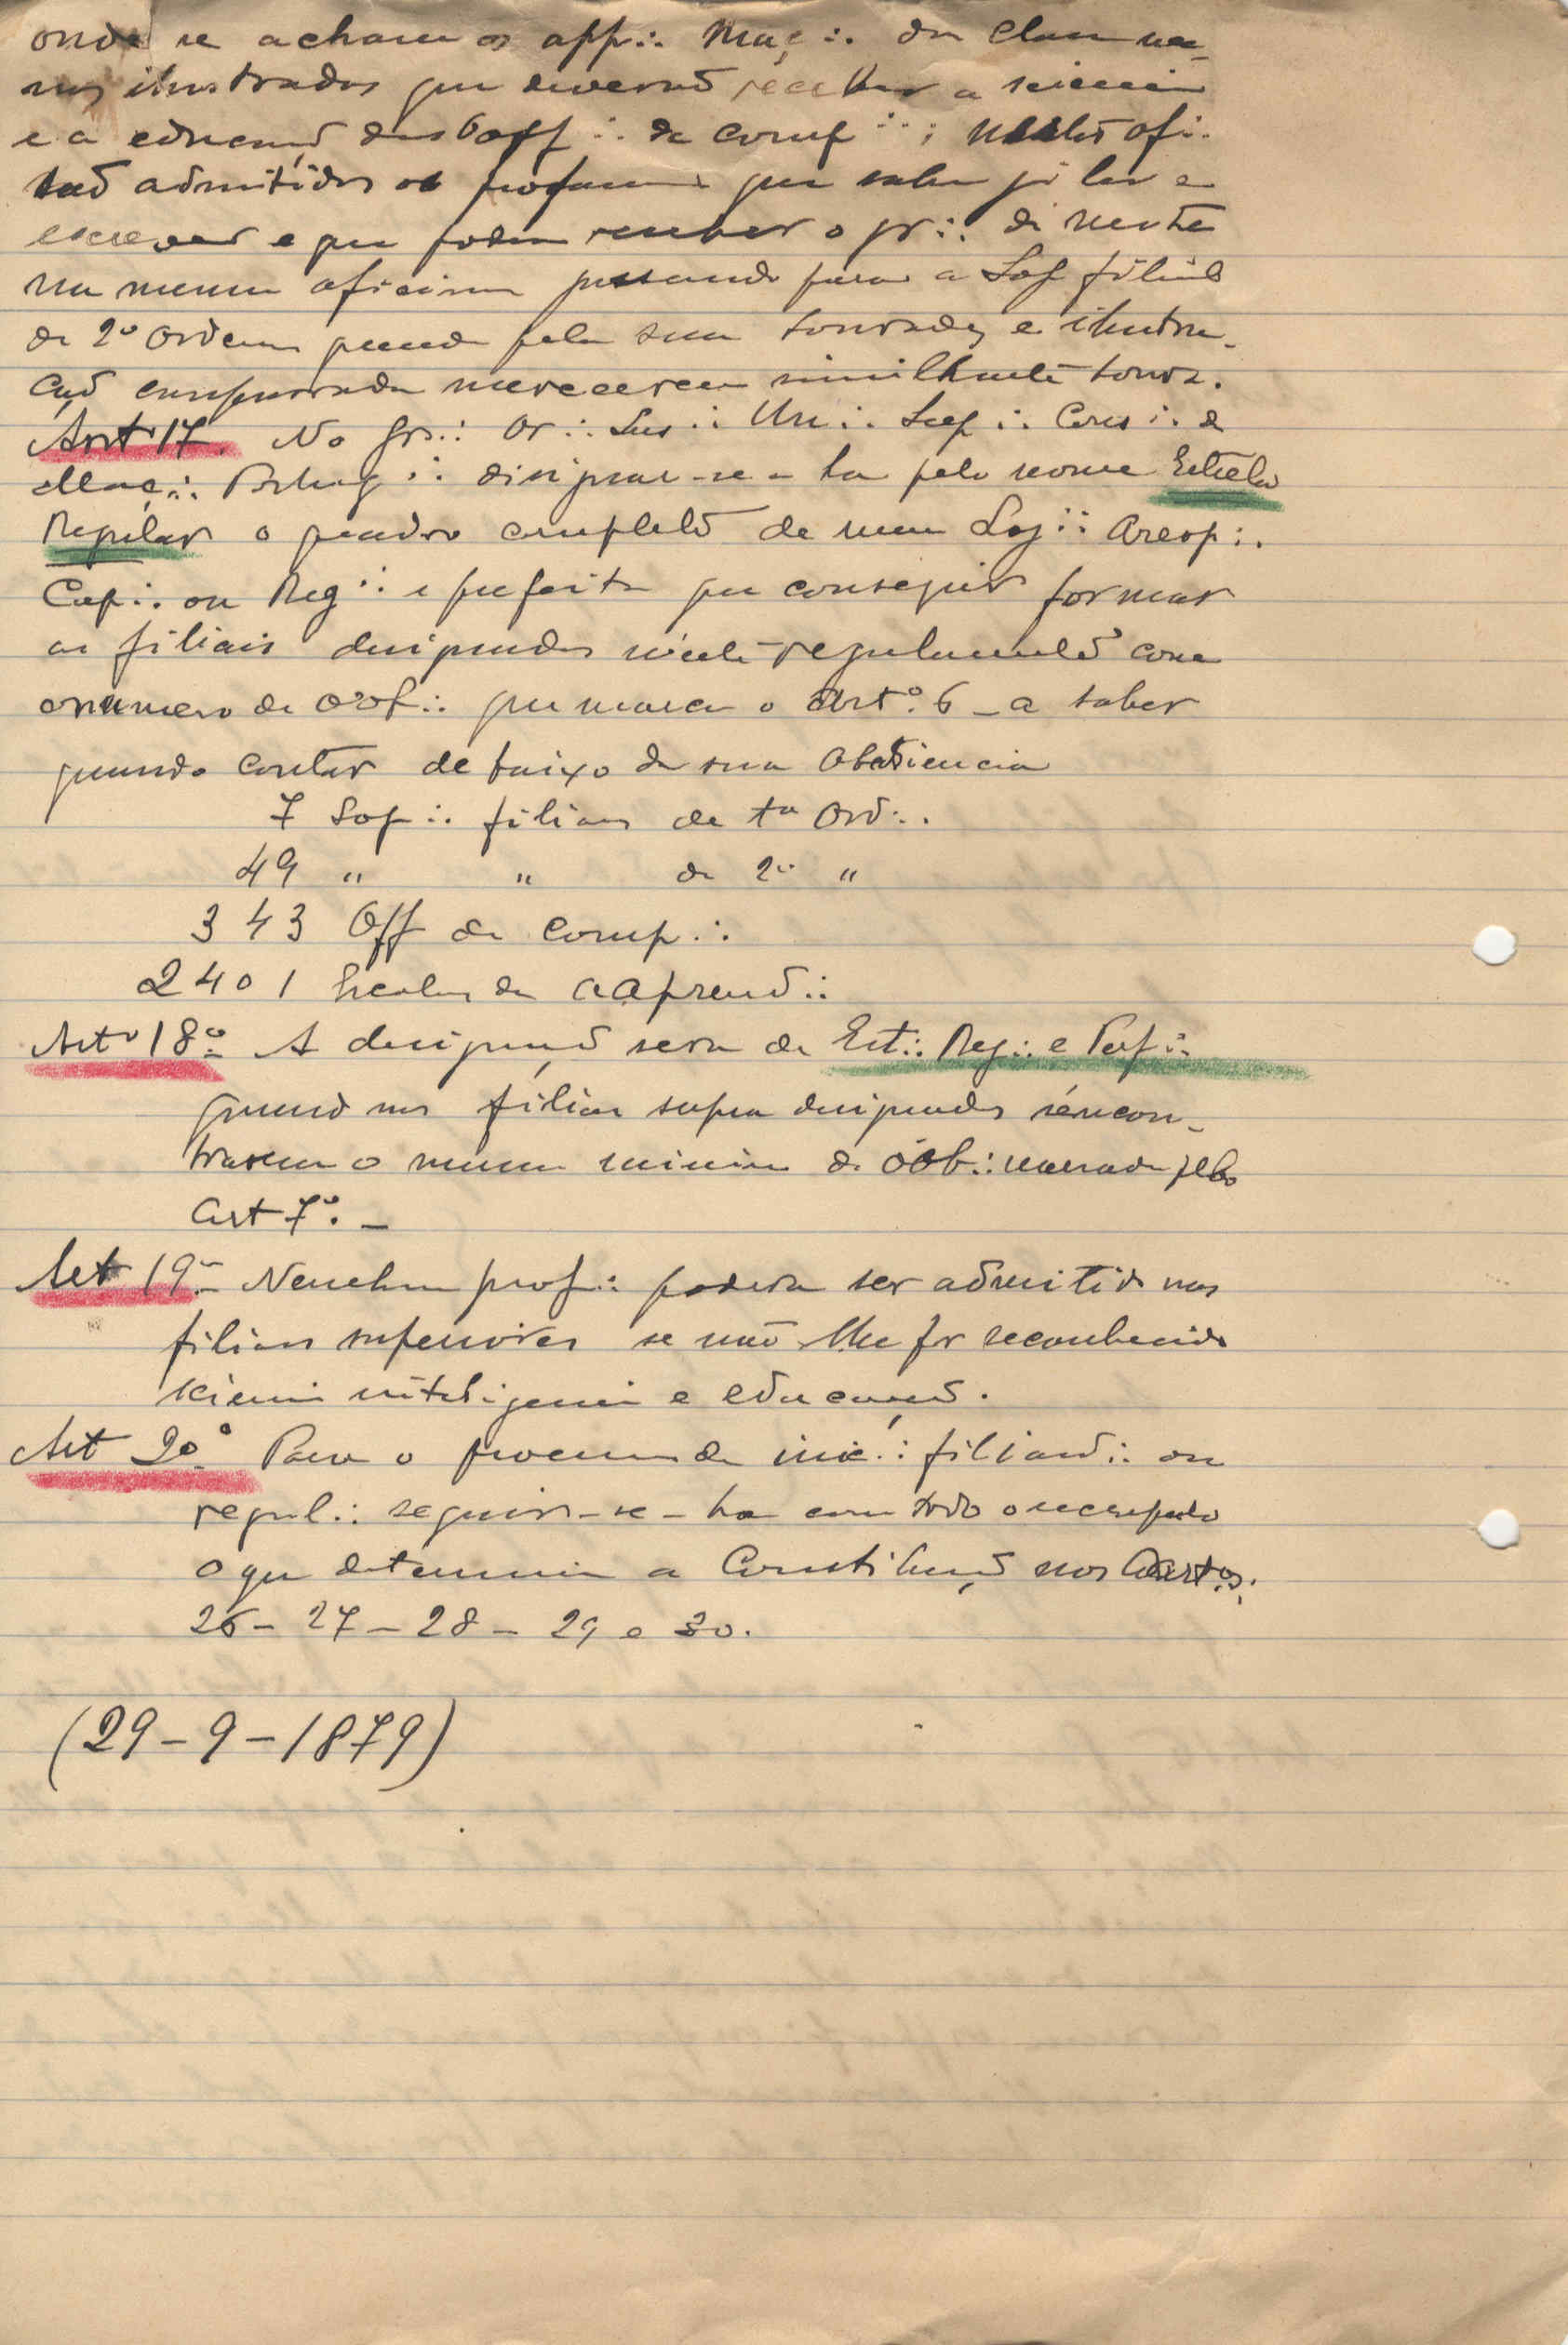 onde se acham os app∴ Maç∴ da classe me-
nos ilustrados que deverão receber a sciencia
e a educação das Ooff∴ de comp∴; nestas ofi.
são admitidos os profanos que saibam já ler e
escrever e que podem receber o gr∴ de mestre
na mesma oficina passando para a Loj filial
de 2ª Ordem quando pela sua honradez e ilustra-
ção comprovada merecerem similhante honra.
Artº 17. No Gr∴ Or∴ Lus∴ Un∴ Sup∴ Cons∴ da
Maç∴ Portug∴ designar-se-ha pelo nome Estrela
Regular o quadro completo de uma Loj∴ Areop∴
Cap∴ ou Reg∴ e perfeita que conseguir formar
as filiais designadas neste regulamento com
o numero de oob∴ que marca o Artº. 6 - a saber
quando contar debaixo da sua Obediencia
7 Loj∴ filiaes de 1ª Ord∴
49 " " de 2ª "
343 Off de comp∴
2401 Escolas de aaprend∴
Artº 18º A designação sera de Est∴ Reg∴ e Perf∴
quando nas filiaes supra designadas se encon-
trarem o numero minimo de oob∴ marcado pelo
Art 7º. -
Art 19º Nenhum prof∴ podera ser admitido nas
filiaes superiores se não lhe for reconhecido
sciencia inteligencia e educação.
Art 20º Para o processo de inic∴ filiand∴ ou
regul∴ seguir-se-ha com todo o escrupulo
o que determina a Constituição nos Aartºs.
26 - 27 - 28 - 29 e 30.
(29-9-1879)